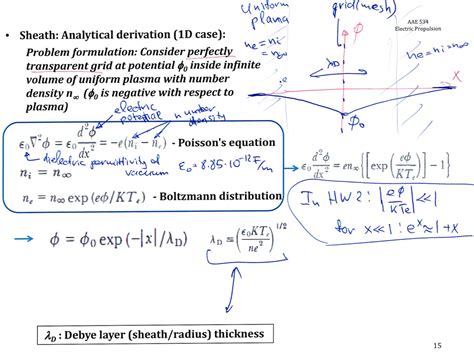 Uniform plasma
grid(mesh)
AAE 534
Electric Propulsion
• Sheath: Analytical derivation (1D case):
Problem formulation: Consider perfectly
transparent grid at potential ϕ₀ inside infinite
volume of uniform plasma with number
density n∞ (ϕ₀ is negative with respect to
plasma)
ne = ni = n∞
ϕ
ne = ni = n∞
λD
x
ϕ₀
electric potential
number density
ε₀∇²ϕ = ε₀ d²ϕ/dx² = −e(ni − ne) - Poisson's equation
dielectric permittivity of vacuum
ε₀ = 8.85·10⁻¹² F/m
ni = n∞
ne = n∞ exp(eϕ/KTe) - Boltzmann distribution
ε₀ d²ϕ/dx² = en∞ {[exp(eϕ/KTe)] − 1}
In HW2: |eϕ/KTe| ≪ 1
for x ≪ 1: eˣ ≈ 1+x
ϕ = ϕ₀ exp(−|x|/λD)
λD = (ε₀KTe/ne²)^1/2
λD : Debye layer (sheath/radius) thickness
15